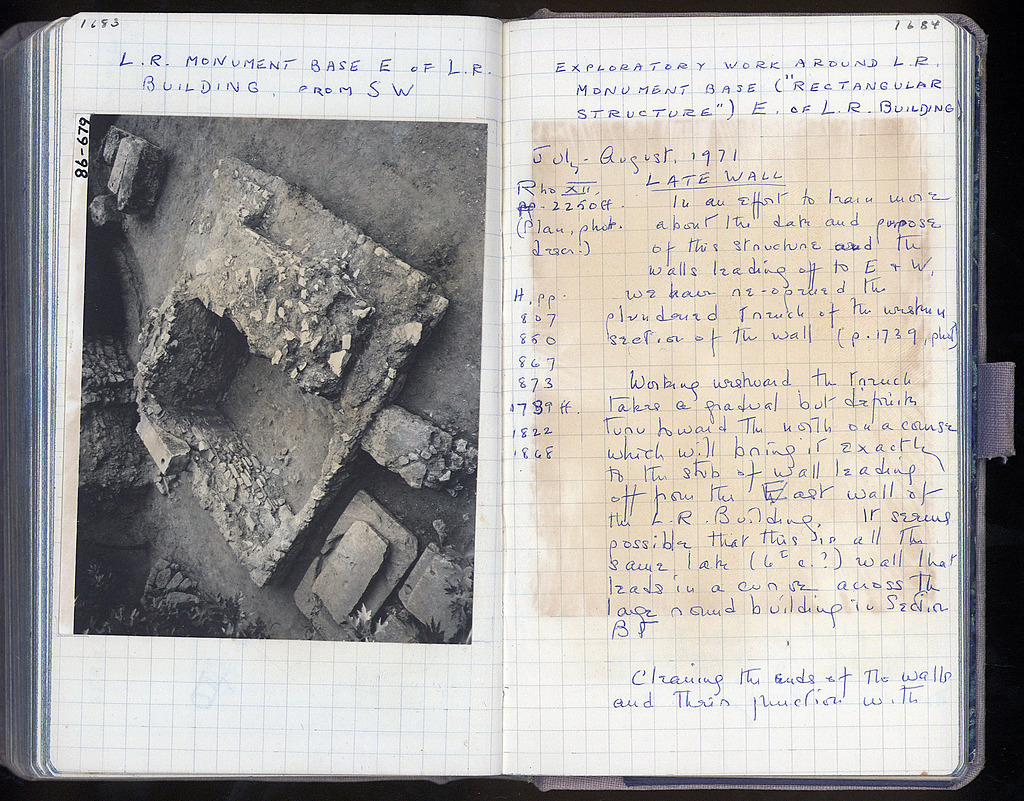 1683
L.R. MONUMENT BASE E OF L.R.
BUILDING, FROM SW
86-679
1684
EXPLORATORY WORK AROUND L.R.
MONUMENT BASE ("RECTANGULAR
STRUCTURE") E. OF L.R. BUILDING
July - August, 1971
LATE WALL
Rho XII
pp. 2250ff.
(Plan, phot.
descr.)
In an effort to learn more
about the date and purpose
of this structure and the
walls leading off to E & W,
we have re-opened the
plundered trench of the western
section of the wall (p. 1739, phot)
H, pp.
807
850
867
873
1739 ff.
1822
1868
Working westward the trench
takes a gradual but definite
turn toward the north on a course
which will bring it exactly
to the stub of wall leading
off from the East wall of
the L.R. Building. It seems
possible that this is all the
same late (6th c.?) wall that
leads in a curve across the
large round building in Section
Cleaning the ends of the walls
and their junction with